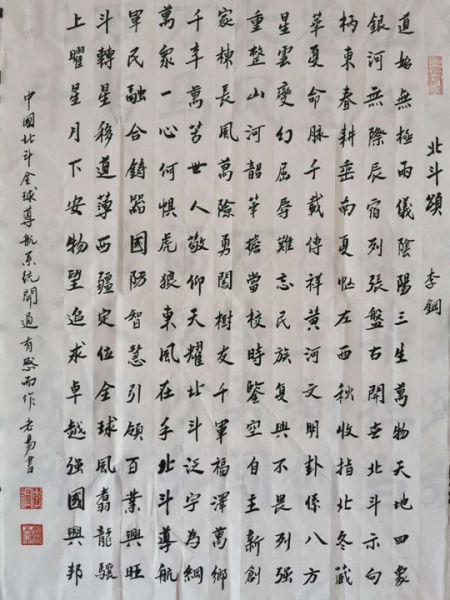 北斗頌 李銅
道始無極兩儀陰陽三生萬物天地四象
銀河無際辰宿列張盤古開世北斗示向
柄東春耕垂南夏忙左西秋收指北冬藏
華夏命脈千載傳祥黄河文明卦係八方
星雲變幻屈辱難忘民族复興不畏列强
重整山河韶華擔當校時鑒空自主新創
家棟長風萬險勇闖樹友千軍福澤萬鄉
千辛萬苦世人敬仰天耀北斗泛宇為綱
萬衆一心何惧虎狼東風在手北斗導航
軍民融合鑄器國防智慧引領百業興旺
斗轉星移道薄西疆定位全球風翥龍驤
上曜星月下安物望追求卓越强國興邦
中國北斗全球導航系统開通有感而作 老易書